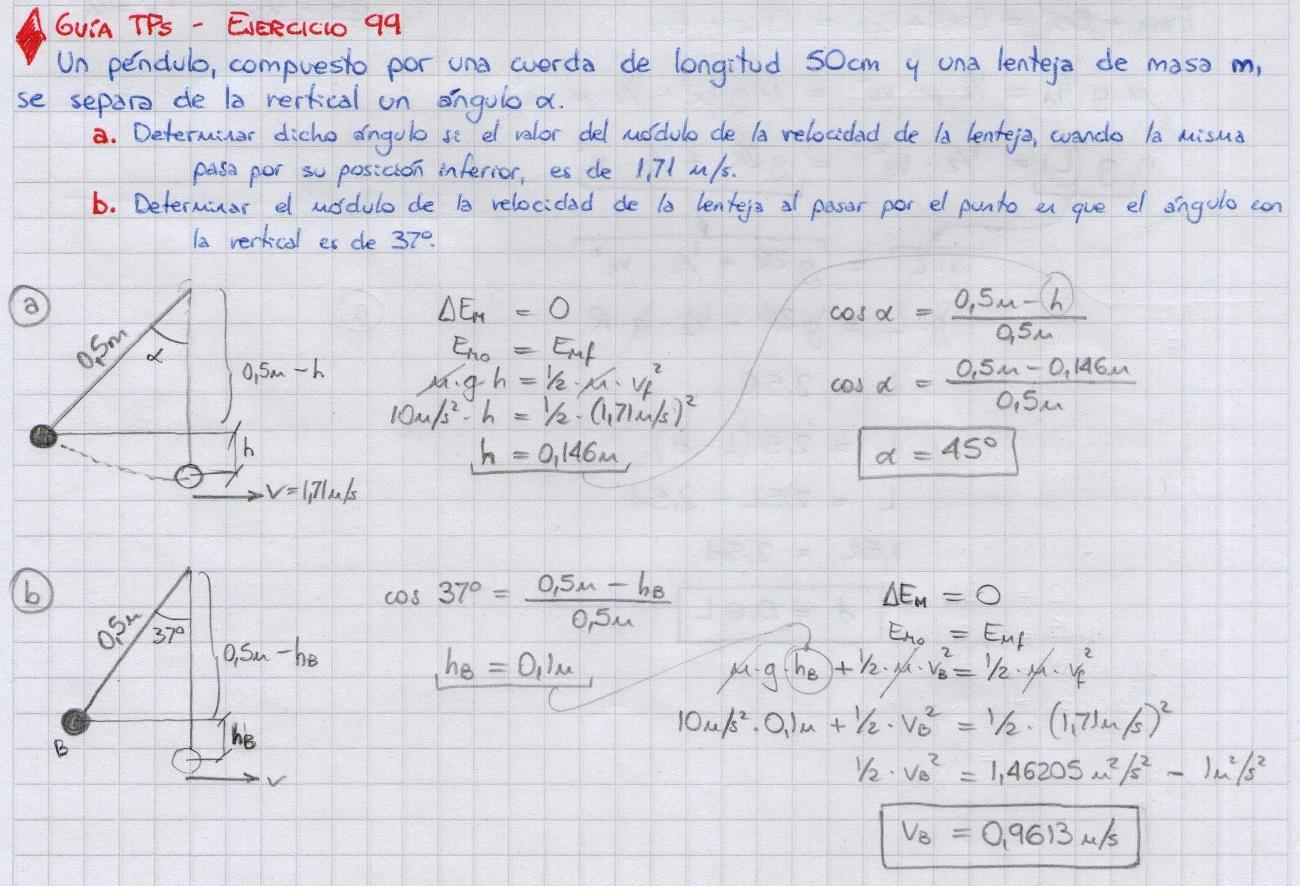 GUÍA TPs - EJERCICIO 99
Un péndulo, compuesto por una cuerda de longitud 50cm y una lenteja de masa m,
se separa de la vertical un ángulo α.
a. Determinar dicho ángulo si el valor del módulo de la velocidad de la lenteja, cuando la misma
pasa por su posición inferior, es de 1,71 m/s.
b. Determinar el módulo de la velocidad de la lenteja al pasar por el punto en que el ángulo con
la vertical es de 37º.
a
0,5m
α
0,5m - h
h
V = 1,71m/s
ΔEM = 0
EM0 = EMf
m · g · h = 1/2 · m · vf²
10m/s² · h = 1/2 · (1,71m/s)²
h = 0,146m
cos α = (0,5m - h) / 0,5m
cos α = (0,5m - 0,146m) / 0,5m
α = 45º
b
0,5m
37º
0,5m - hB
B
hB
v
cos 37º = (0,5m - hB) / 0,5m
hB = 0,1m
ΔEM = 0
EM0 = EMf
m · g · hB + 1/2 · m · vB² = 1/2 · m · vf²
10m/s² · 0,1m + 1/2 · VB² = 1/2 · (1,71m/s)²
1/2 · VB² = 1,46205 m²/s² - 1m²/s²
VB = 0,9613 m/s